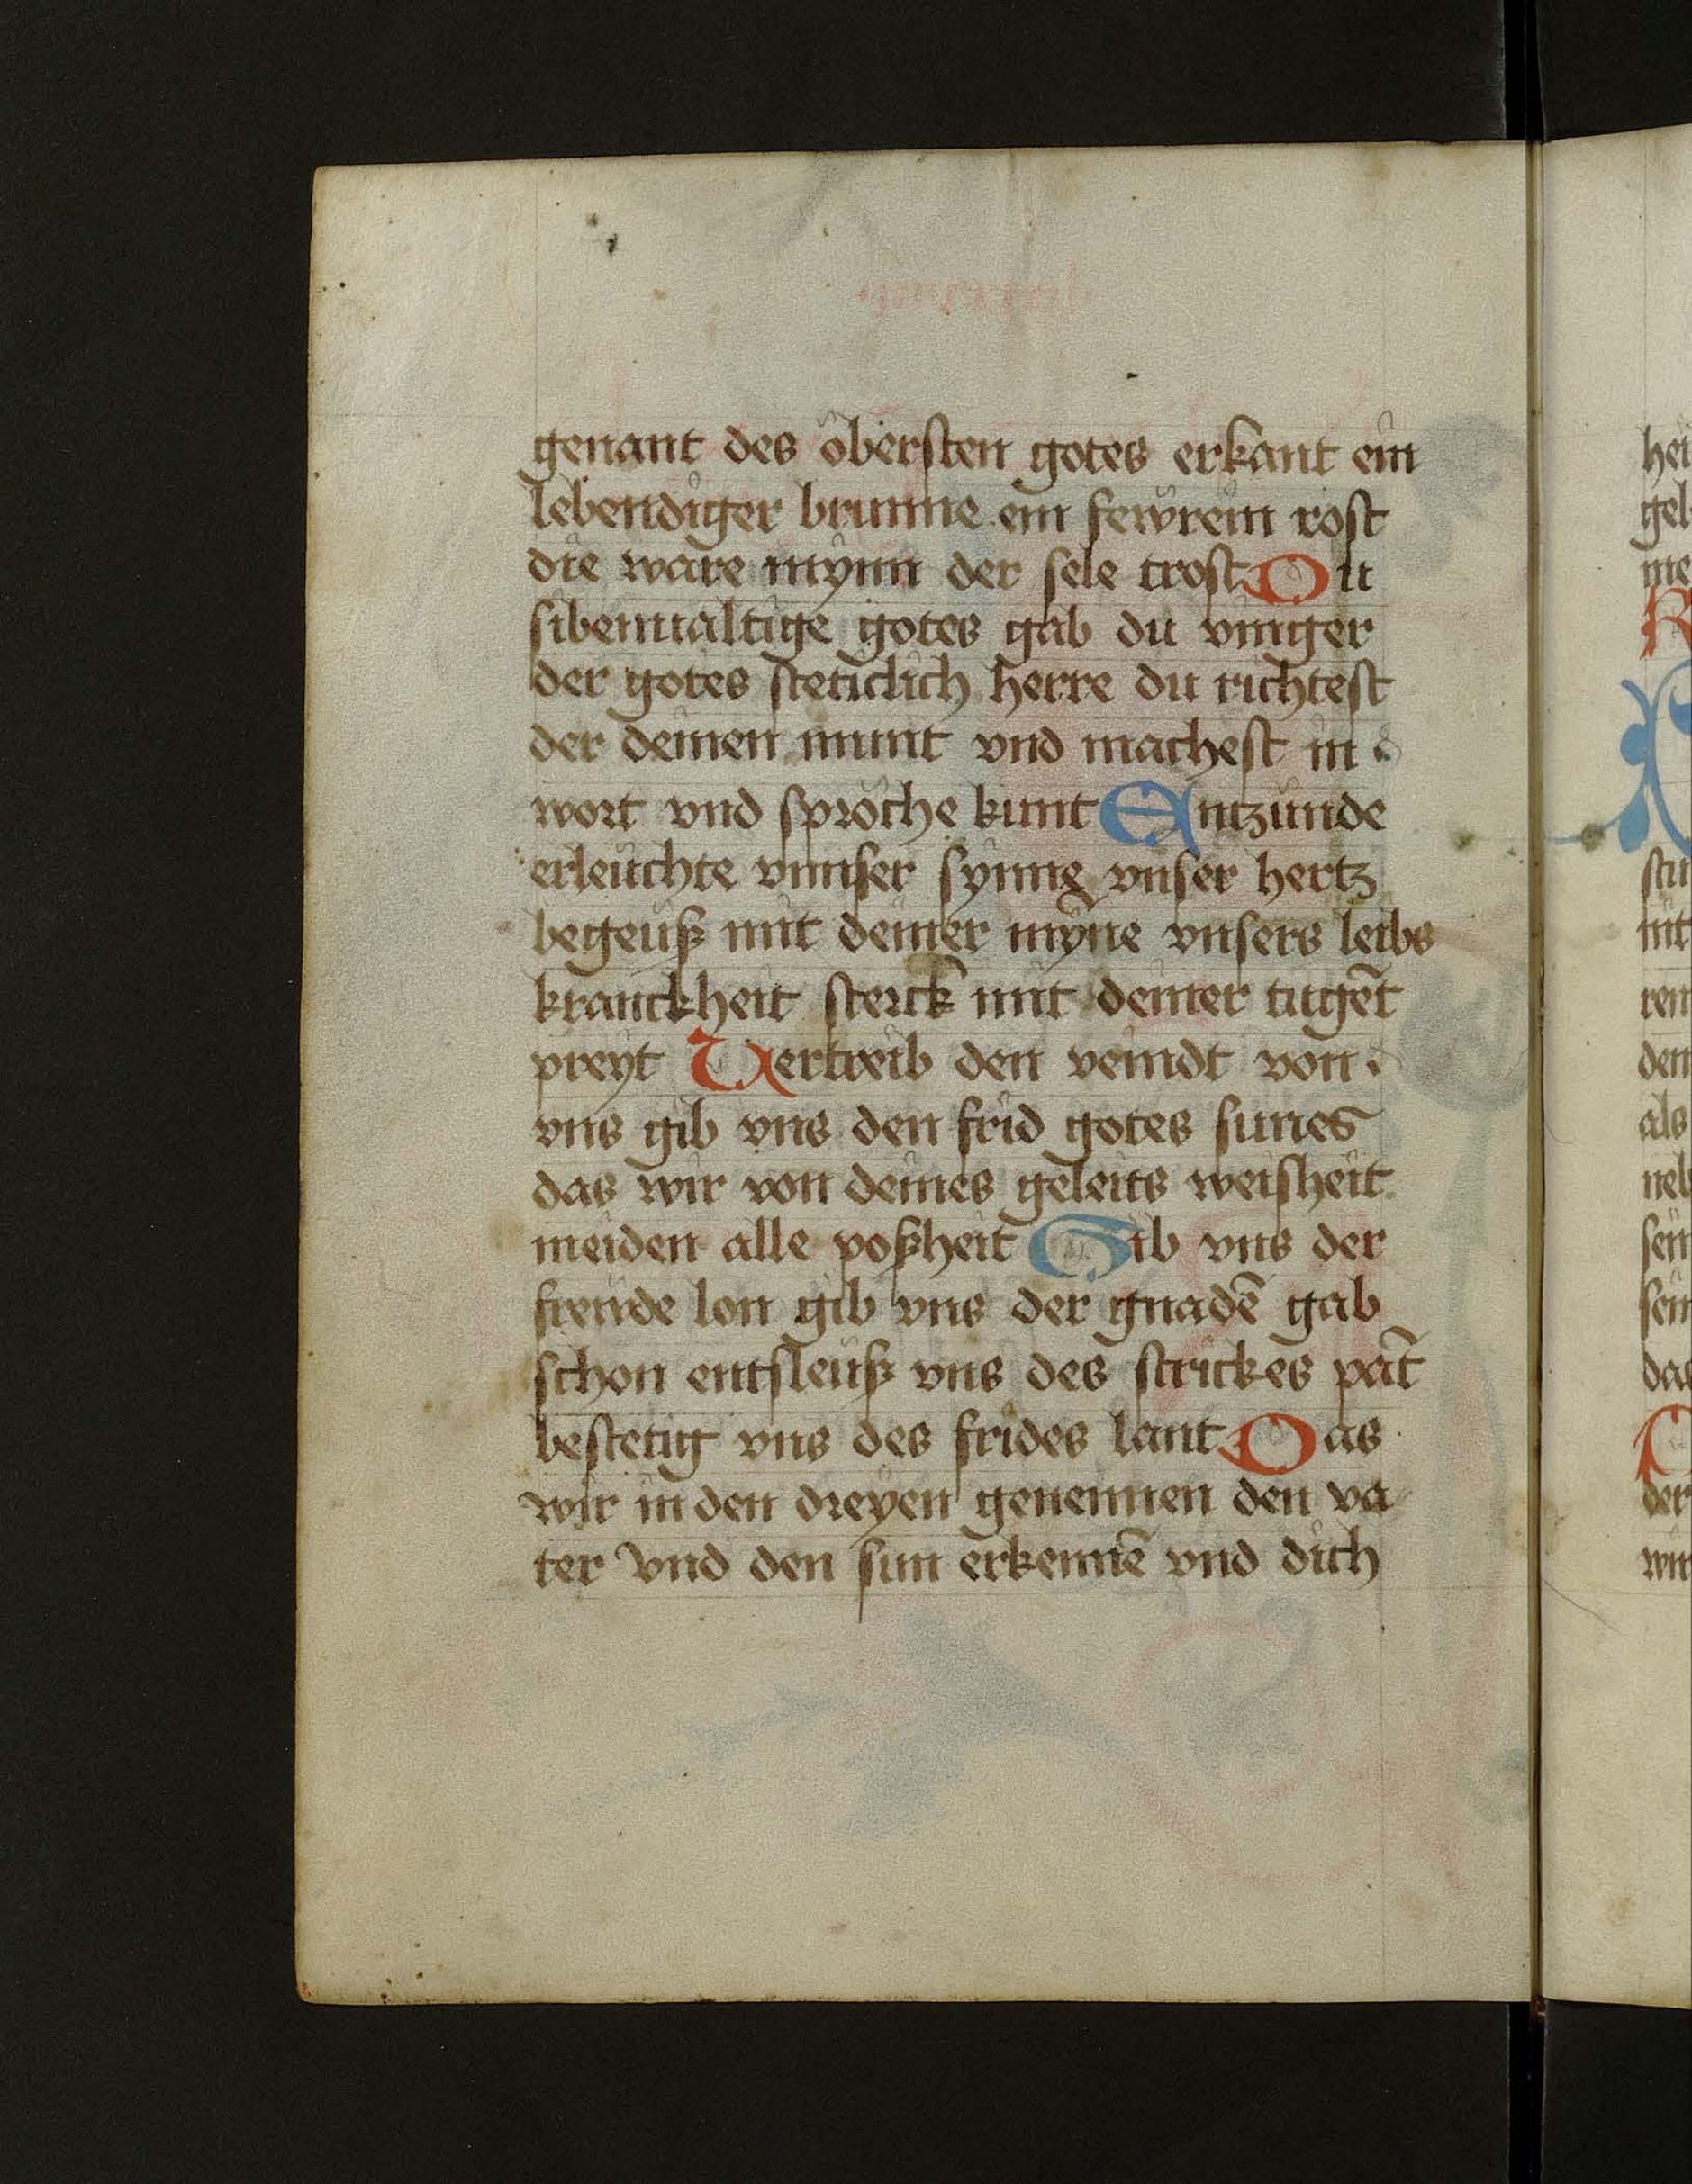 genant des öbersten gotes erkant ein
lebendiger brunne ein fewrein rost
die ware mynn der sele trost Du
sibenualtige gotes gab du vinger
der gotes steticlich herre du richtest
der deinen munt vnd machest in
wort vnd sproche kunt Entzünde
erleüchte vnnser synne vnser hertz
begeuß mit deiner myne vnsers leibs
kranckheit sterck mit deiner tugēt
preyt Vertreib den veindt von
vns gib vns den frid gotes sunes
das wir von deines geleits weisheit
meiden alle poßheit Gib vns der
freude lon gib vns der gnadē gab
schon entsleuß vns des strickes pāt
bestetig vns des frides lant Das
wir in den dreyen genennen den va
ter vnd den sun erkennē vnd dich